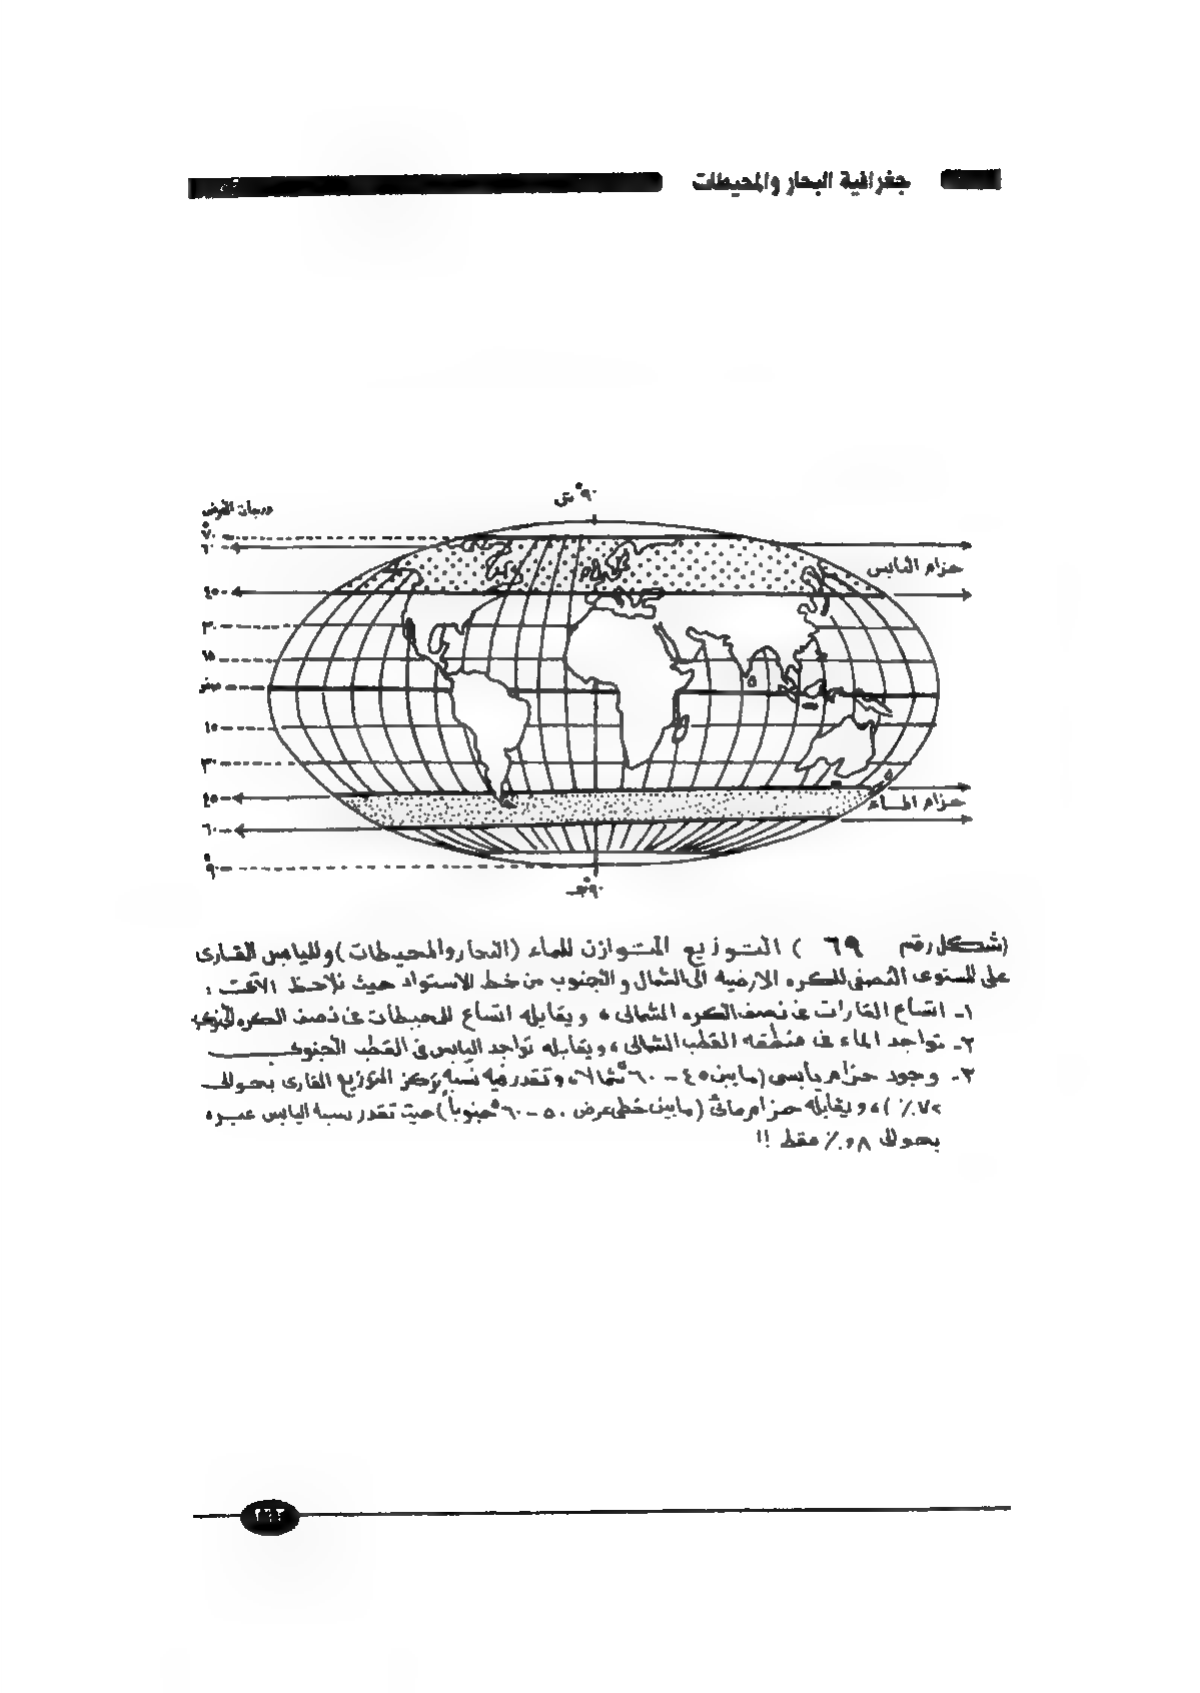 جغرافية البحار والمحيطات
٩٠° ش
درجات العرض
٧٠°
٦٠
حزام اليابس
٤٥
٣٠
١٥
صفر
١٥
٣٠
٤٥
حزام الماء
٦٠
٩٠°
٩٠° جـ
(شكل رقم ٦٩ ) التوزيع المتوازن للماء (البحار والمحيطات) ولليابس القارى
على المستوى النصفى للكره الارضيه الى الشمال والجنوب من خط الاستواء حيث نلاحظ الآتى :
١- اتساع القارات فى نصف الكره الشمالى ، ويقابله اتساع المحيطات فى نصف الكره الجنوبى
٢- تواجد الماء فى منطقه القطب الشمالى ، ويقابله تواجد اليابس فى القطب الجنوبى
٣- وجود حزام يابسى (مابين ٤٥ - ٦٠° شمالا، وتقدر فيه نسبة تركز التوزيع القارى بحوالى
٧٢٪ )، ويقابله حزام مائى (مابين خطى عرض ٥٠ - ٦٠° جنوباً) حيث تقدر نسبة اليابس عبره
بحوالى ٠,٨٪ فقط !!